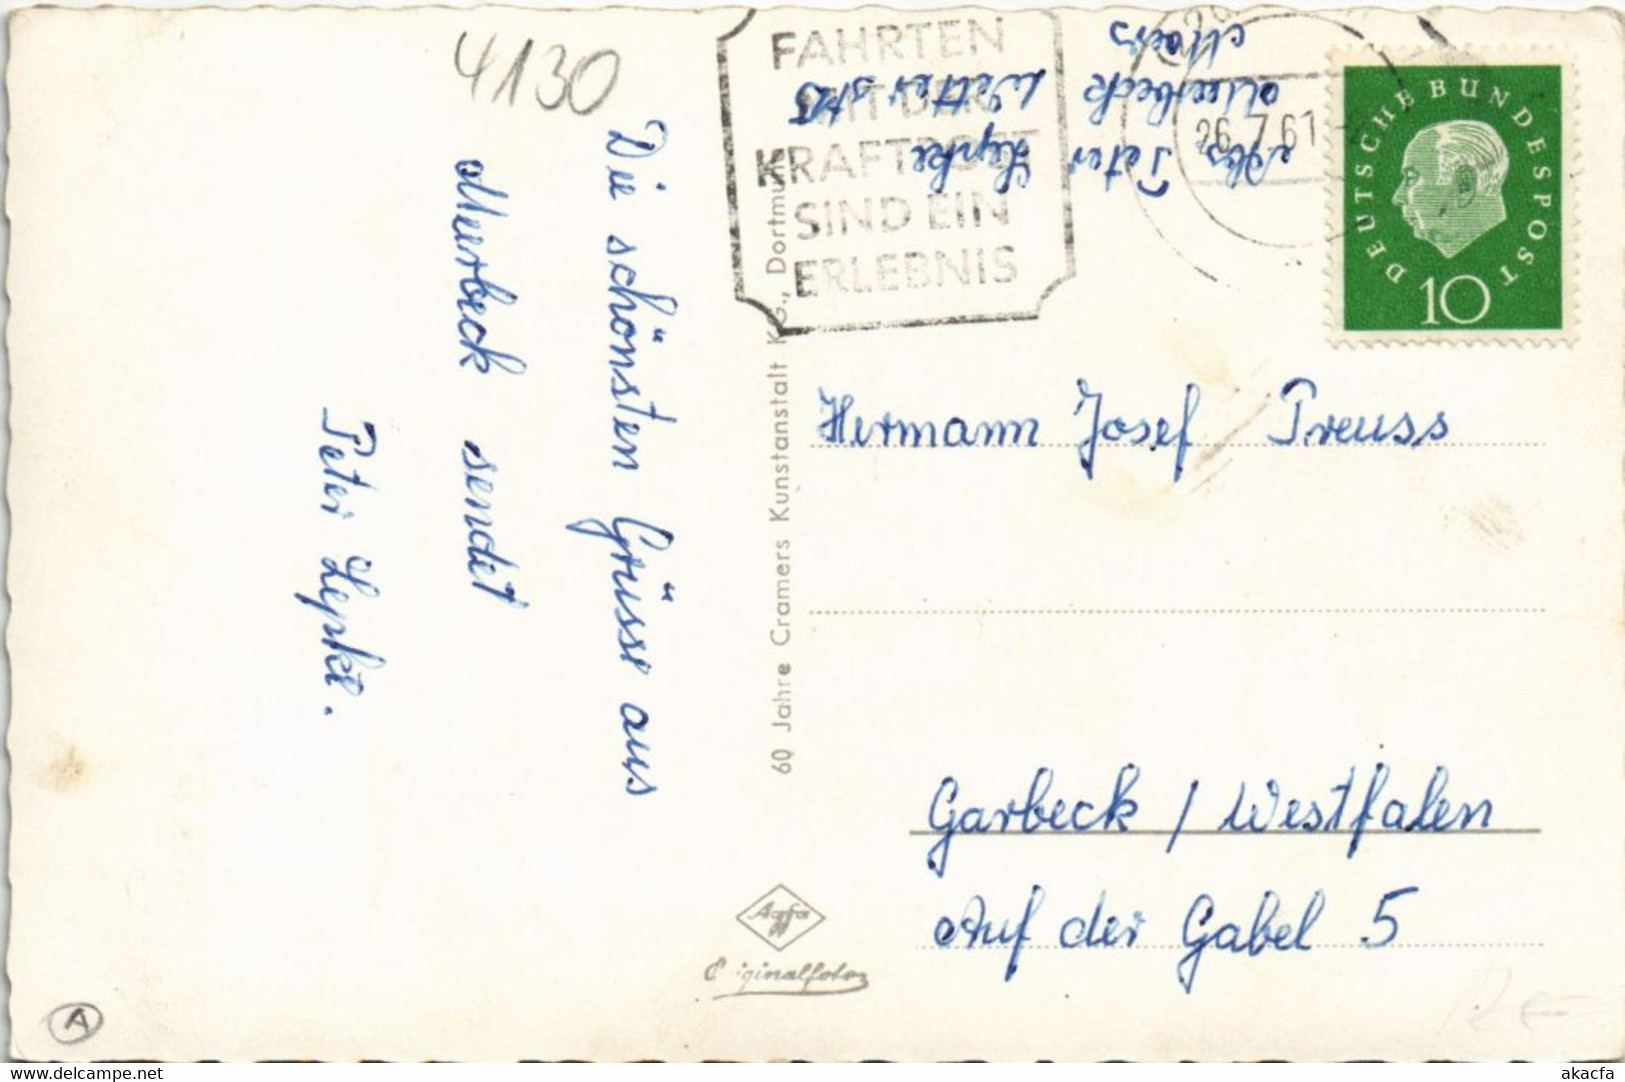 4130
Die schönsten Grüsse aus
Meerbeck sendet
Peter Lepke.
60 Jahre Cramers Kunstanstalt KG., Dortmund
FAHRTEN
MIT DER
KRAFTPOST
SIND EIN
ERLEBNIS
Abs Peter Lepke
Meerbeck
Moers
26.7.61
DEUTSCHE BUNDESPOST
10
Hermann Josef Preuss
Garbeck / Westfalen
Auf der Gabel 5
Agfa
Originalfoto
A
www.delcampe.net
akacfa